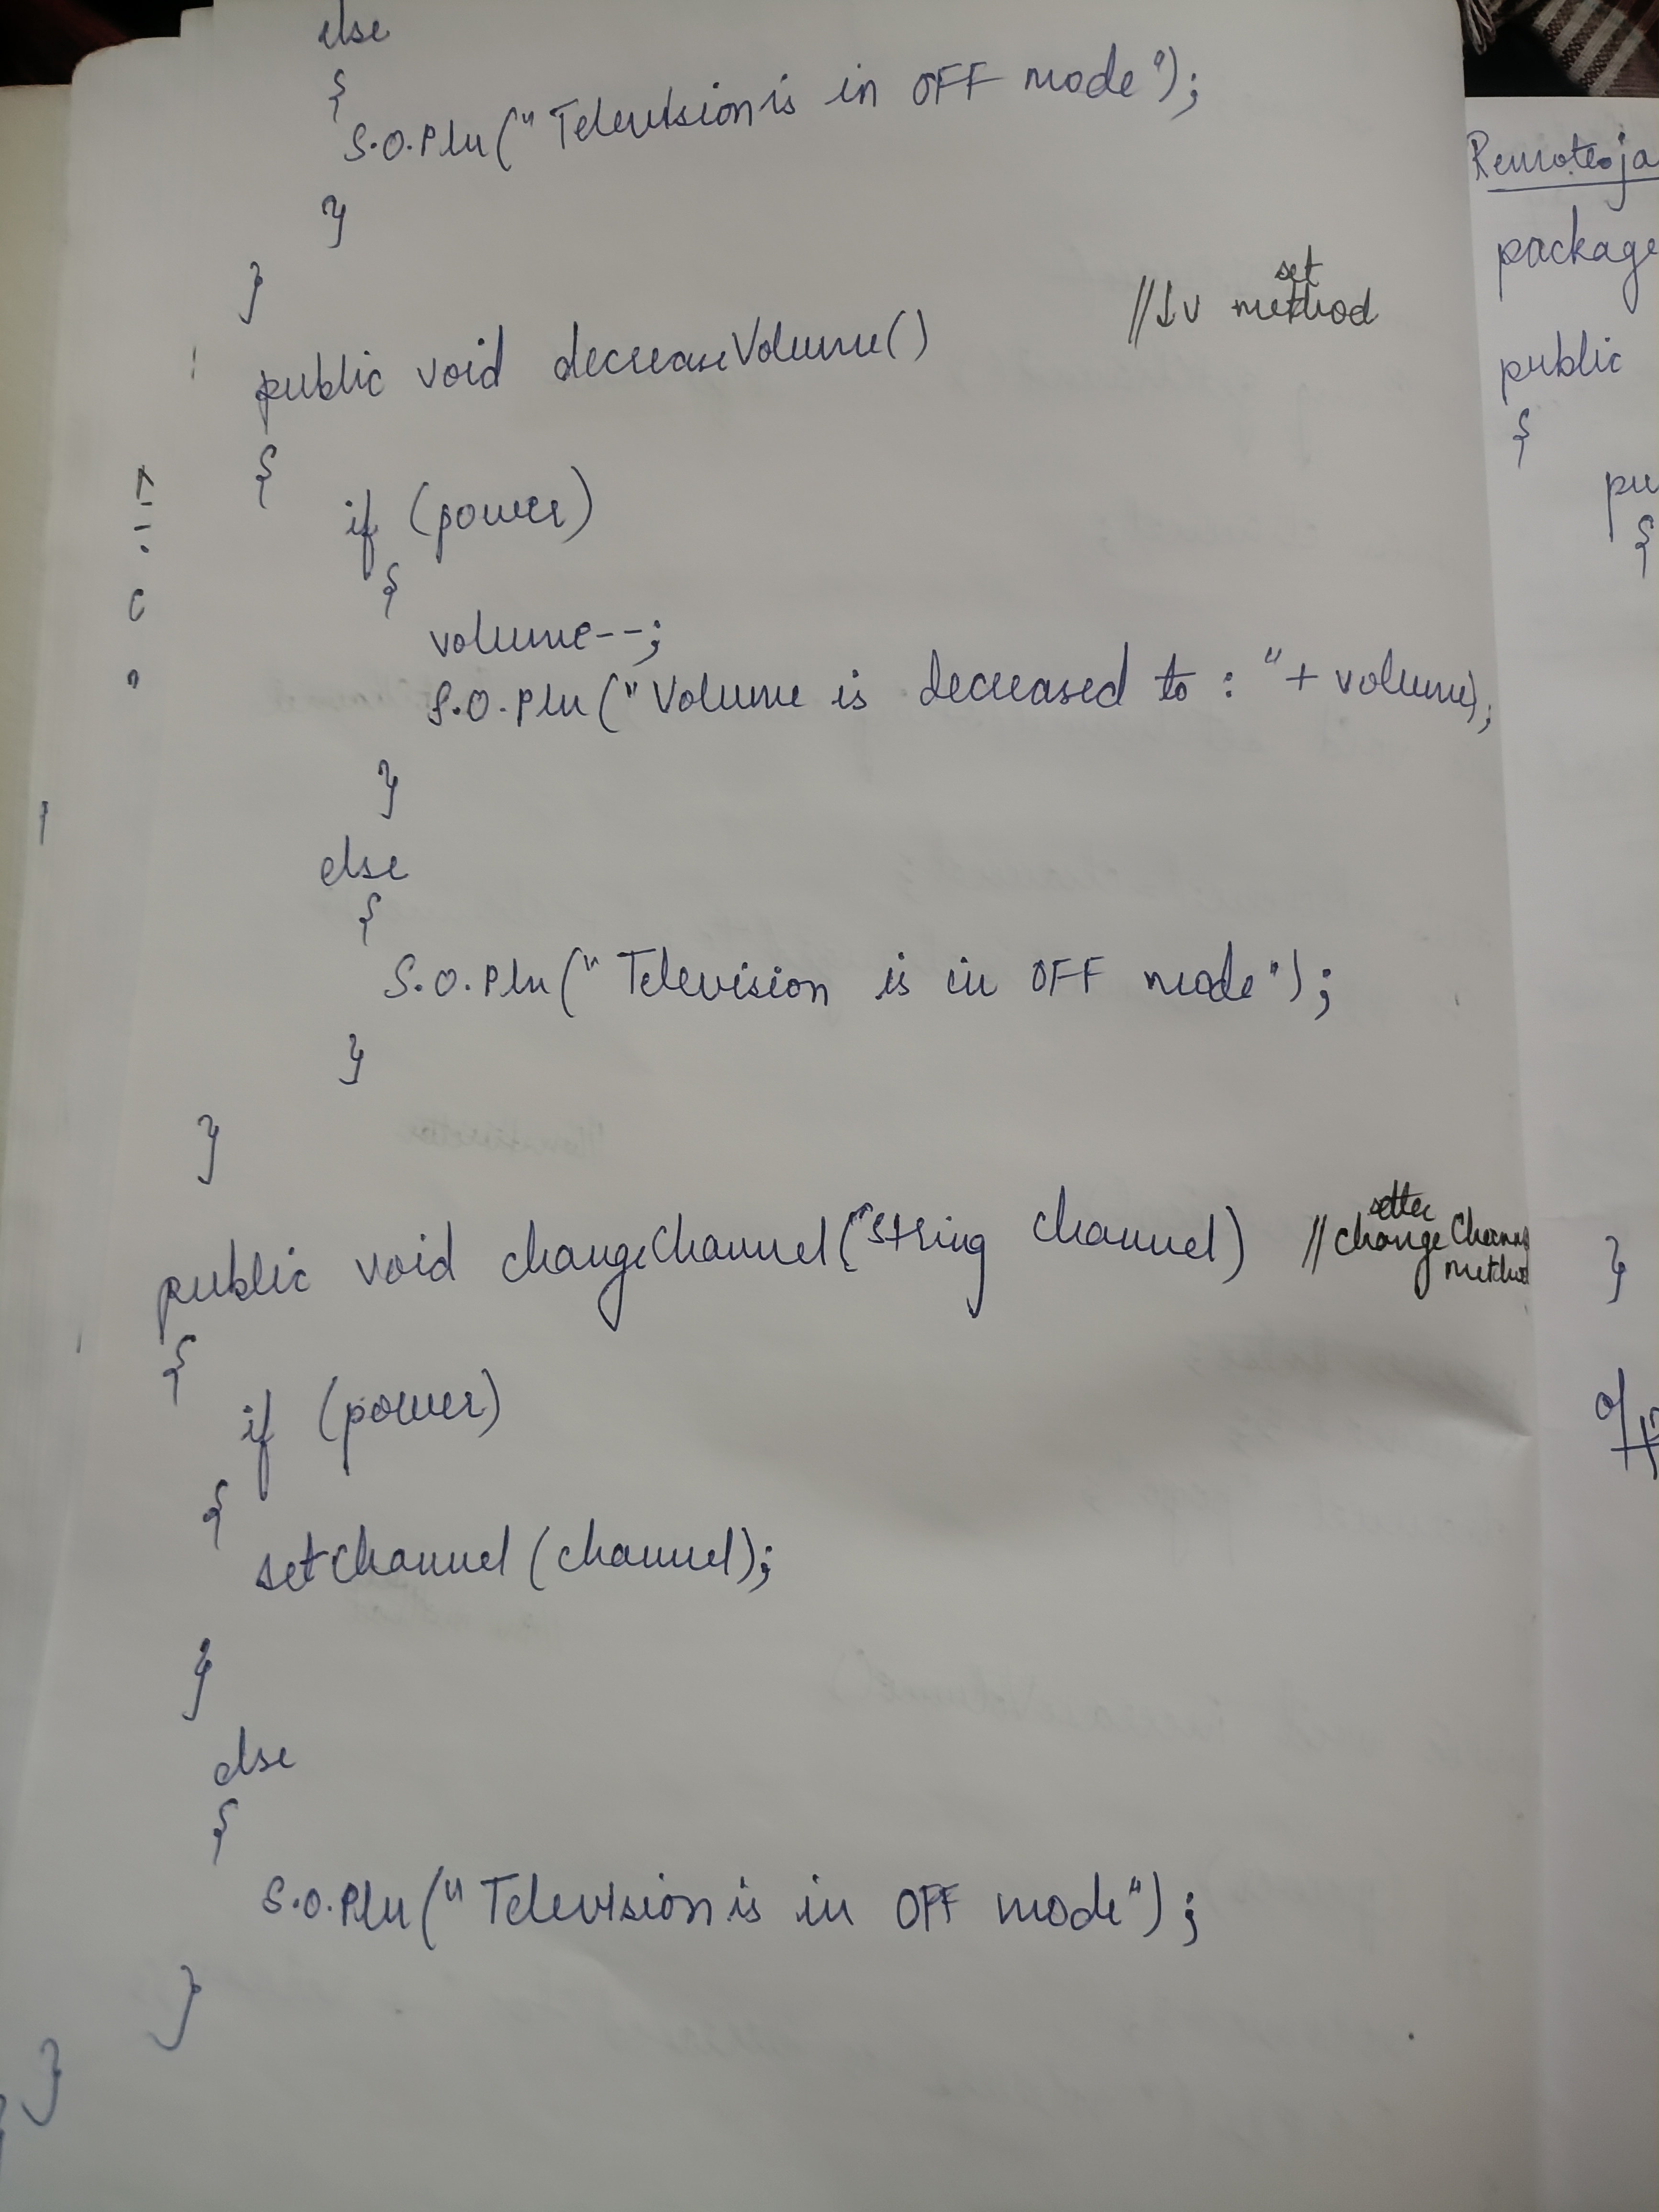 else
{
S.O.Pln("Television is in OFF mode");
}
}
public void decreaseVolume() //↓v set method
{
if (power)
{
volume--;
S.O.Pln("Volume is decreased to : "+ volume);
}
else
{
S.O.Pln("Television is in OFF mode");
}
}
public void changeChannel(String channel) //setter change Channel method
{
if (power)
{
setChannel(channel);
}
else
{
S.O.Pln("Television is in OFF mode");
}
}
}
Remote.ja
package
public
{
pu
{
}
O/p